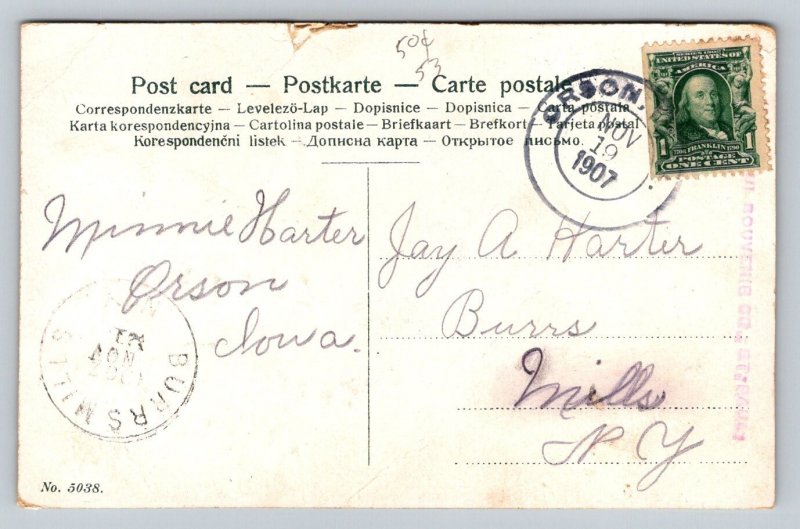 50¢
53
Post card — Postkarte — Carte postale
Correspondenzkarte — Levelező-Lap — Dopisnice — Dopisnica — Carta postala
Karta korespondencyjna — Cartolina postale — Briefkaart — Brefkort — Tarjeta postal
Korespondenční listek — Дописна карта — Открытое письмо.
ORSON,
NOV
19
1907
SERIES 1902
UNITED STATES OF
AMERICA
1 1706 FRANKLIN 1790 1
POSTAGE
ONE CENT
Minnie Harter
Orson
Iowa.
Jay A Harter
Burrs
Mills
N Y
BURRS MILLS
NOV
SOUVENIR CO.
No. 5038.